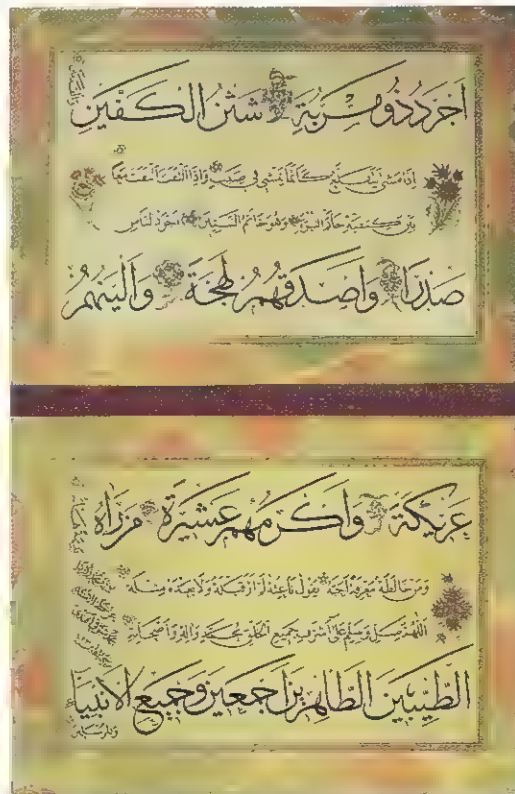 اجرد ذو مسربة شثن الكفين
اذا مشى يتقلع كانما يمشى فى صبب واذا التفت التفت معا
بين كتفيه خاتم النبوة وهو خاتم النبيين اجود الناس
صدرا واصدقهم لهجة والينهم
عريكة واكرمهم عشيرة من راه
ومن خالطه معرفة احبه يقول ناعته لم ار قبله ولا بعده مثله
اللهم صل وسلم على اشرف جميع الخلق محمد واله واصحابه
الطيبين الطاهرين اجمعين وجميع الانبيا
والمرسلين